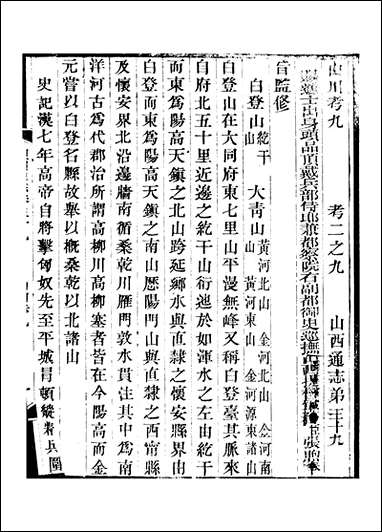 山川考九　考二之九　山西通志第三十九
進士出身頭品頂戴兵部侍郎兼都察院右副都御史巡撫
旨監修
白登山乾干山　大青山黃河北山　黃河東山　金河北山　金源東諸山　金河南山
白登山在大同府東七里山平漫無峰又稱白登臺其脈來
自府北五十里近邊之紇干山衍迤於如渾水之左由紇干
而東爲陽高天鎮之北山跨延鄉水與直隸之懷安縣界由
白登而東爲陽高天鎮之南山歷陽門山與直隸之西甯縣
及懷安界北沿邊牆南循桑乾川雁門敦水貫注其中爲南
洋河古爲代郡治所謂高柳川高柳塞者皆在今陽高而金
元嘗以白登名縣故舉以槪桑乾以北諸山
史記漢七年高帝自將擊匈奴先至平城冒頓縱精兵圍